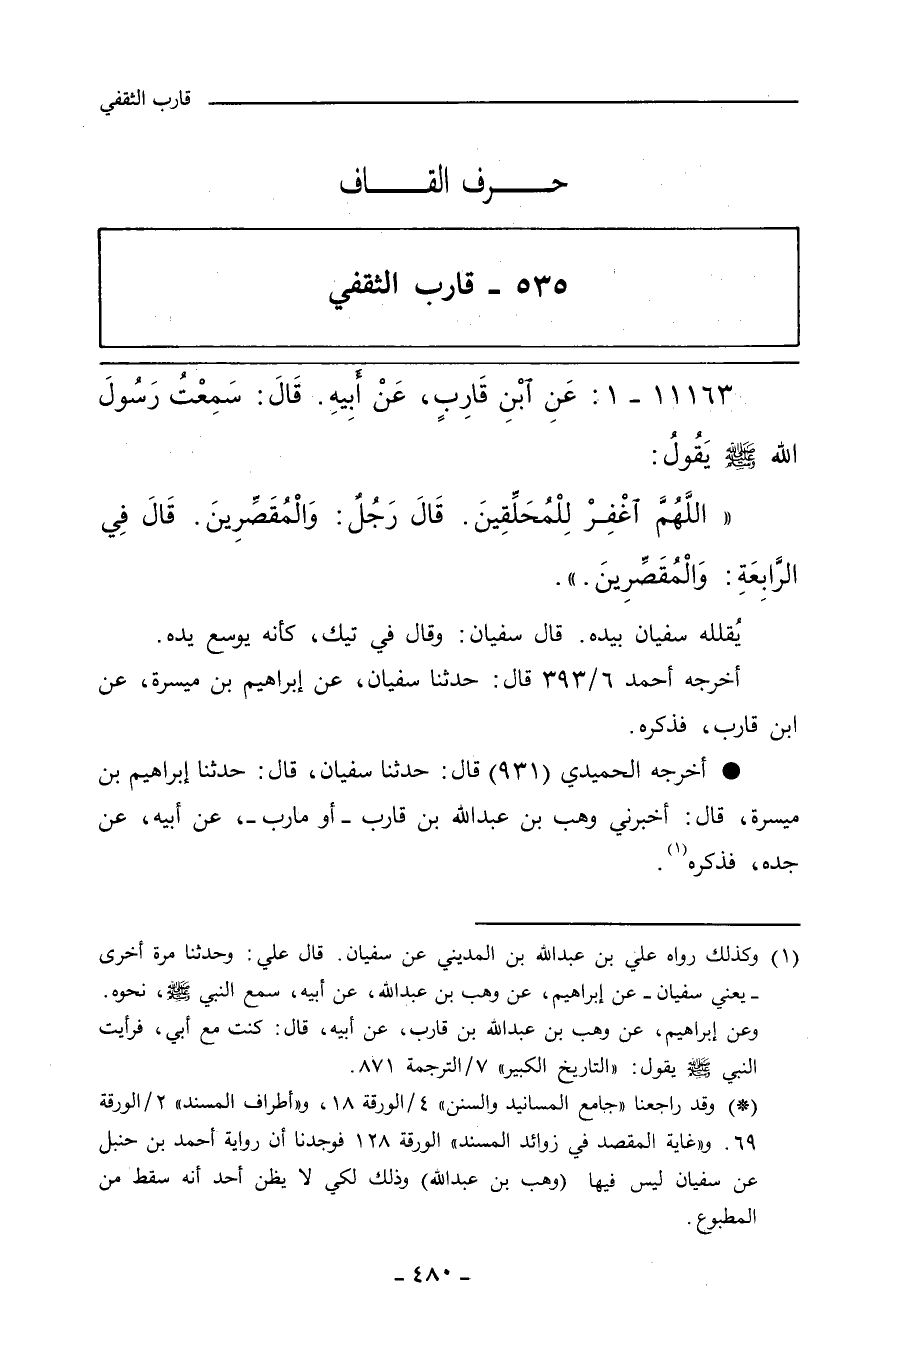 قارب الثقفي
حـــــرف القـــــاف
٥٣٥ ـ قارب الثقفي
١١١٦٣ ـ ١ : عَنِ ٱبْنِ قَارِبٍ، عَنْ أَبِيهِ. قَالَ: سَمِعْتُ رَسُولَ
الله ﷺ يَقُولُ:
« اللَّهُمَّ ٱغْفِرْ لِلْمُحَلِّقِينَ. قَالَ رَجُلٌ: وَالْمُقَصِّرِينَ. قَالَ فِي
الرَّابِعَةِ: وَالْمُقَصِّرِينَ.».
يُقلله سفيان بيده. قال سفيان: وقال في تيك، كأنه يوسع يده.
أخرجه أحمد ٣٩٣/٦ قال: حدثنا سفيان، عن إبراهيم بن ميسرة، عن
ابن قارب، فذكره.
● أخرجه الحميدي (٩٣١) قال: حدثنا سفيان، قال: حدثنا إبراهيم بن
ميسرة، قال: أخبرني وهب بن عبدالله بن قارب ـ أو مارب ـ، عن أبيه، عن
جده، فذكره(١).
(١) وكذلك رواه علي بن عبدالله بن المديني عن سفيان. قال علي: وحدثنا مرة أخرى
ـ يعني سفيان ـ عن إبراهيم، عن وهب بن عبدالله، عن أبيه، سمع النبي ﷺ، نحوه.
وعن إبراهيم، عن وهب بن عبدالله بن قارب، عن أبيه، قال: كنت مع أبي، فرأيت
النبي ﷺ يقول: «التاريخ الكبير» ٧/الترجمة ٨٧١.
(*) وقد راجعنا «جامع المسانيد والسنن» ٤/الورقة ١٨، و«أطراف المسند» ٢/الورقة
٦٩. و«غاية المقصد في زوائد المسند» الورقة ١٢٨ فوجدنا أن رواية أحمد بن حنبل
عن سفيان ليس فيها (وهب بن عبدالله) وذلك لكي لا يظن أحد أنه سقط من
المطبوع.
ـ ٤٨٠ ـ